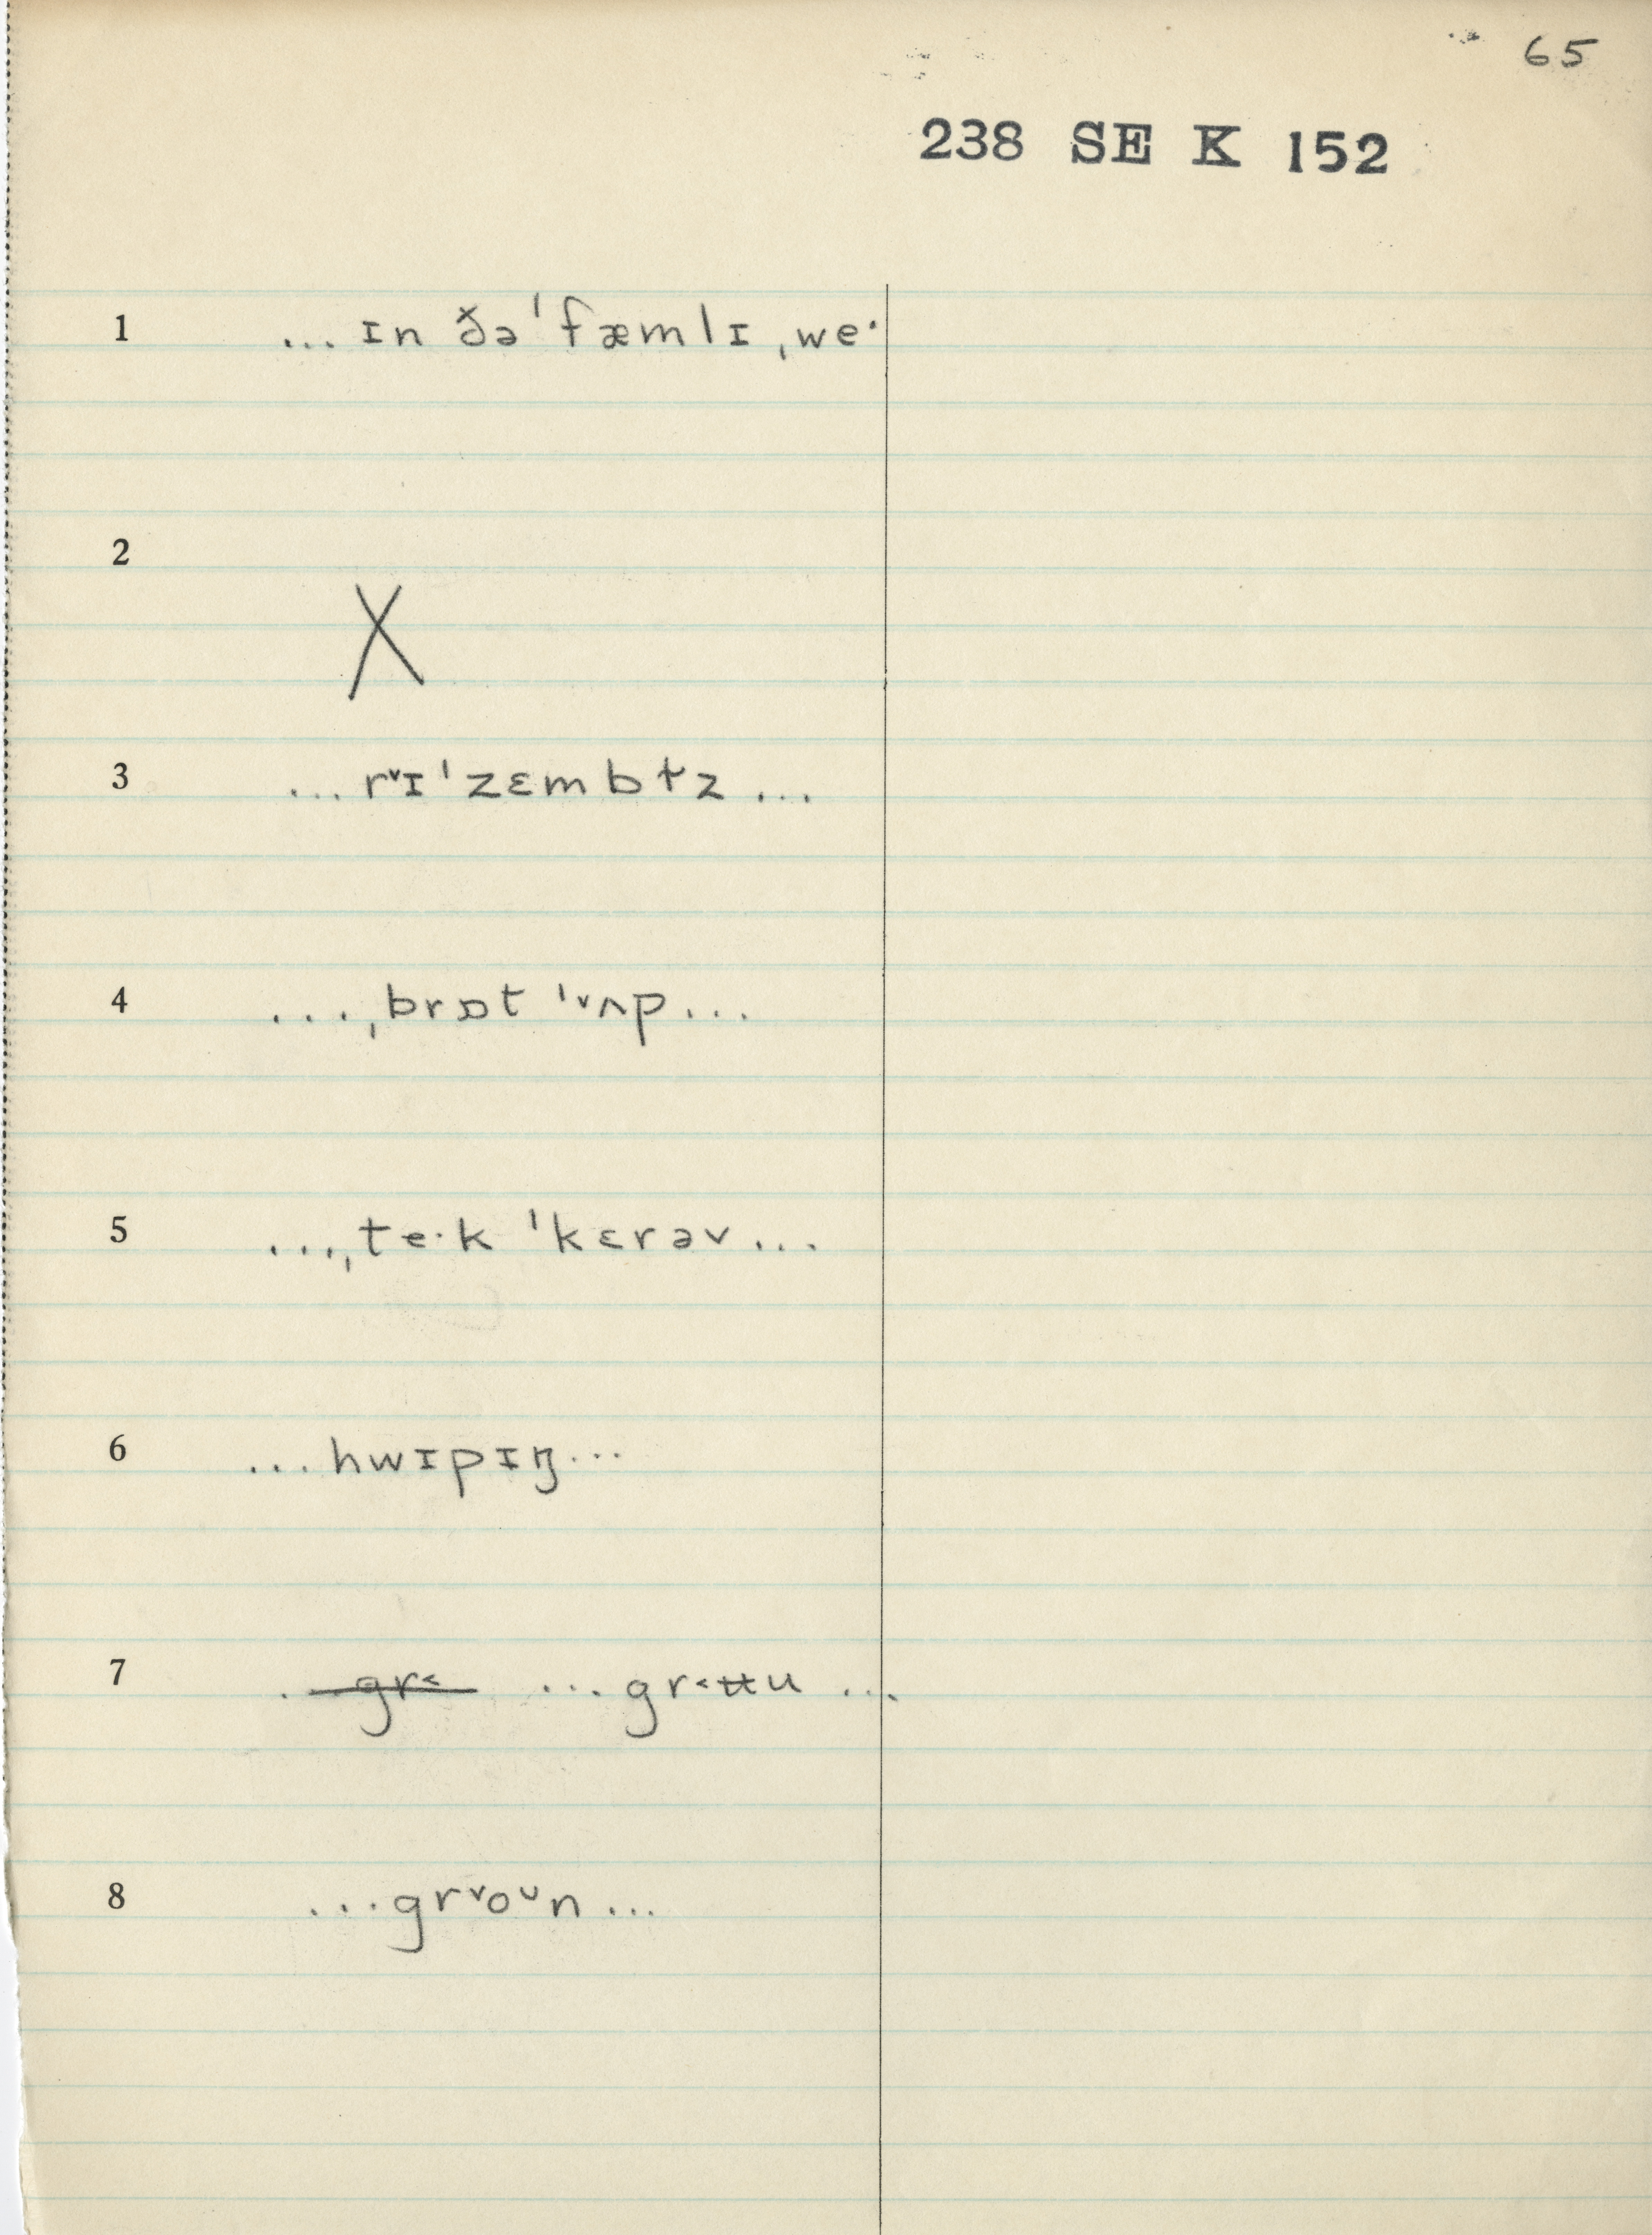 65
238 SE K 152
1 ... ɪn ðə ˈfæmlɪ ˌwe·
2 X
3 ... rᵛɪˈzɛmbɫz ...
4 ...ˌbrɒt ˈᵛʌp...
5 ...ˌte·k ˈkɛrəv...
6 ...hwɪpɪŋ...
7 ...gr˂ ...gr˂ʉu ...
8 ...grᵛoᶸn...